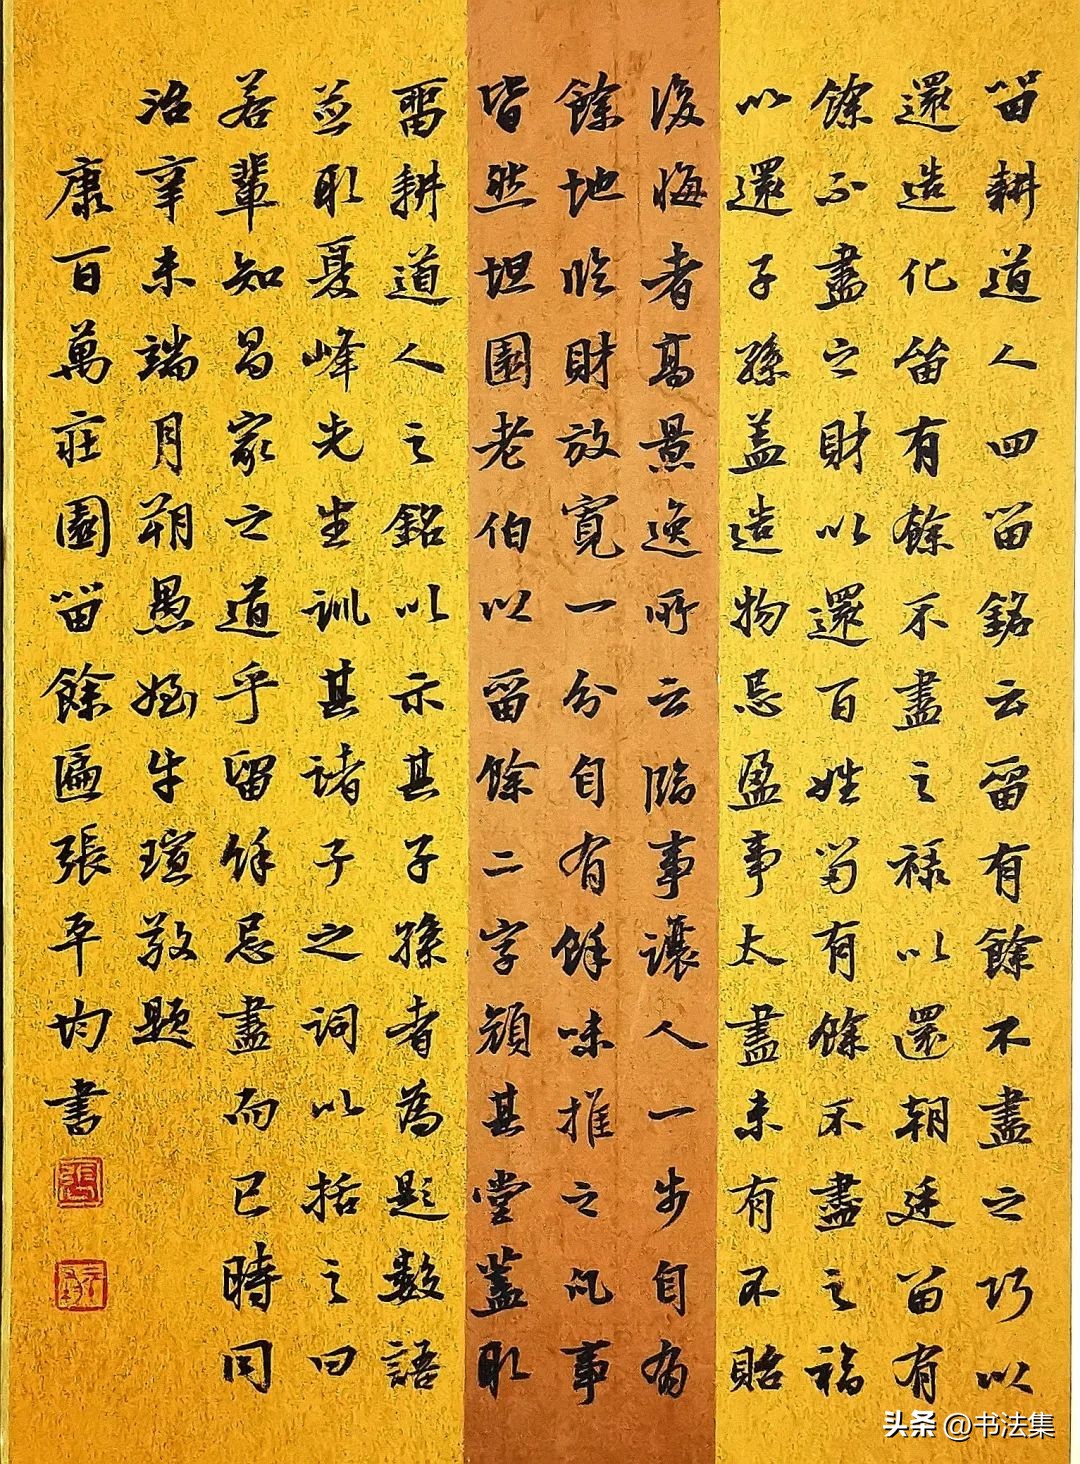 留耕道人四留銘云留有餘不盡之巧以
還造化留有餘不盡之禄以還朝廷留有
餘不盡之財以還百姓留有餘不盡之福
以還子孫盖造物忌盈事太盡未有不貽
後悔者高景逸所云臨事讓人一步自有
餘地臨財放寬一分自有餘味推之凡事
皆然坦園老伯以留餘二字顏其堂蓋取
留耕道人之銘以示其子孫者為題數語
並取夏峰先生訓其諸子之詞以括之曰
若輩知昌家之道乎留餘忌盡而已時同
治辛未端月朔愚姪牛瑄敬題
康百萬莊園留餘匾張平均書
头条 @书法集